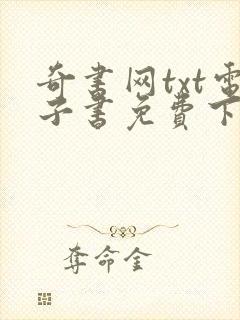 奇书网txt电
子书免费下
夺命金